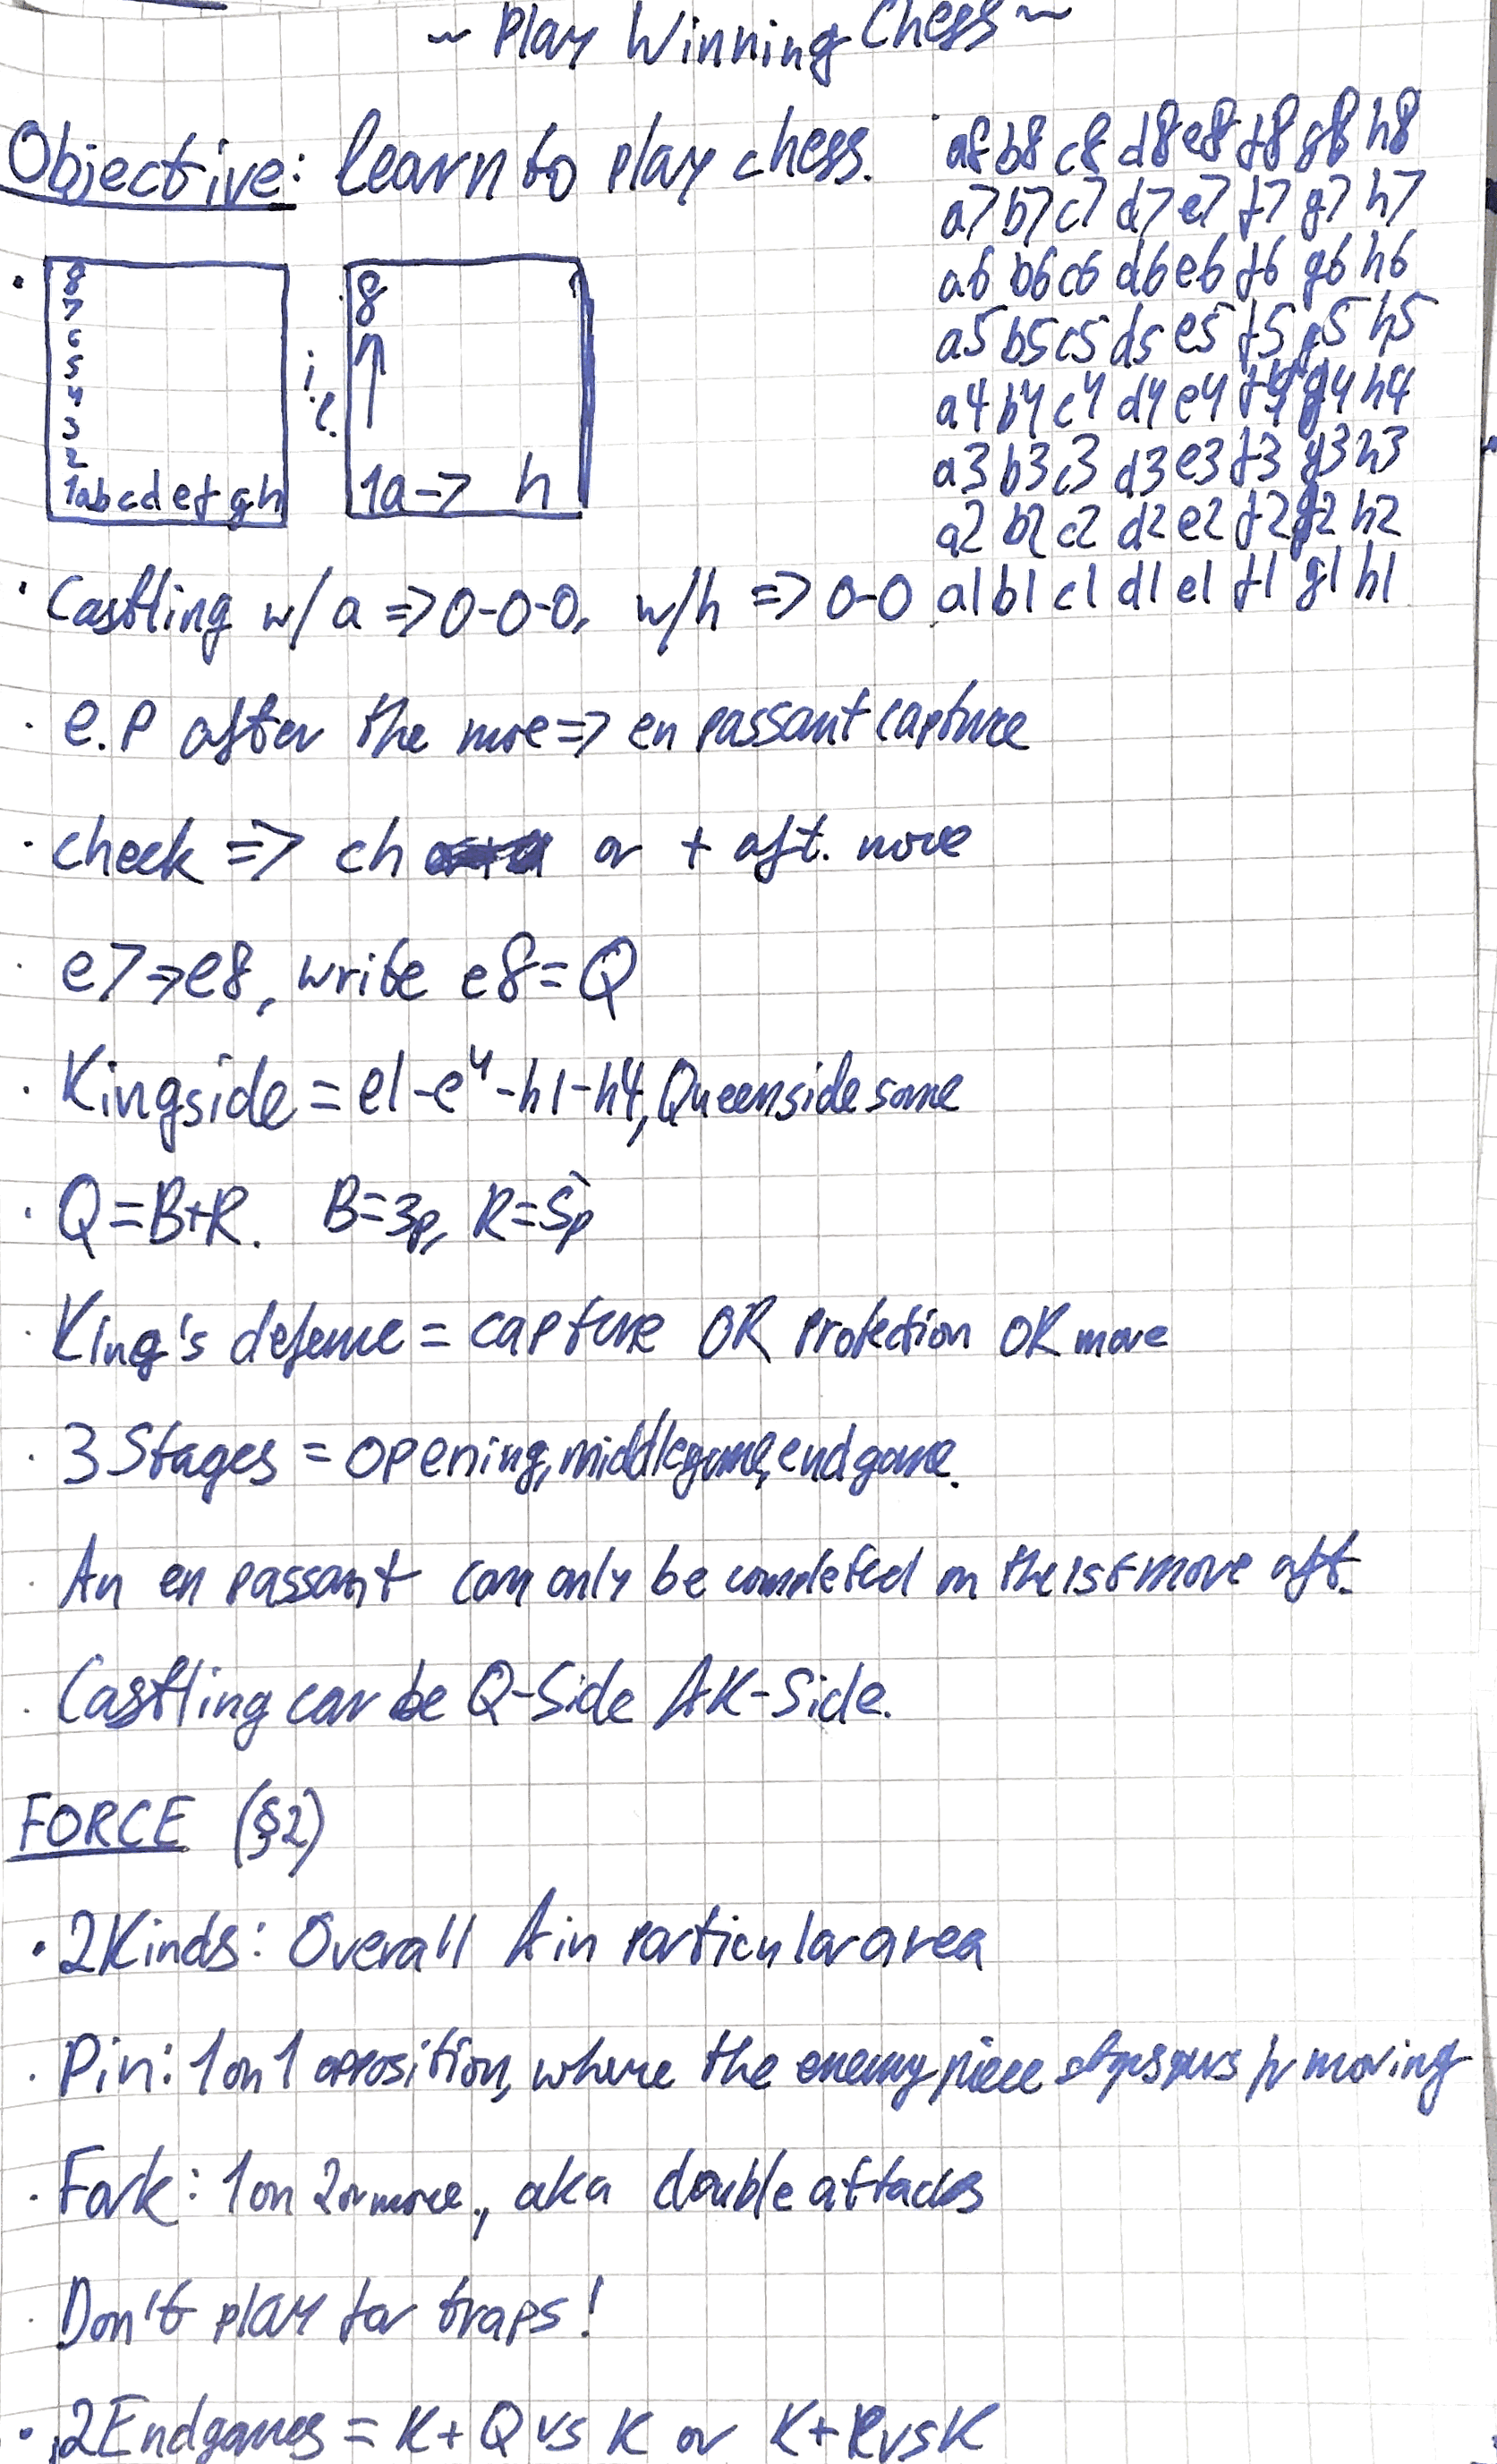 ~ Play Winning Chess ~
Objective: learn to play chess.
a8 b8 c8 d8 e8 f8 g8 h8
a7 b7 c7 d7 e7 f7 g7 h7
a6 b6 c6 d6 e6 f6 g6 h6
a5 b5 c5 d5 e5 f5 g5 h5
a4 b4 c4 d4 e4 f4 g4 h4
a3 b3 c3 d3 e3 f3 g3 h3
a2 b2 c2 d2 e2 f2 g2 h2
a1 b1 c1 d1 e1 f1 g1 h1
8
7
6
5
4
3
2
1abcdefgh
i.e.
8
↑
1a-> h
· Castling w/a => 0-0-0, w/h => 0-0
· e.p after the move => en passant capture
· check => ch or + aft. move
· e7=>e8, write e8=Q
· Kingside = e1-e4-h1-h4, Queenside same
· Q=B+R. B=3p, R=5p
· King's defense = capture OR protection OR move
· 3 Stages = opening, middlegame, endgame.
· An en passant can only be completed on the 1st move aft.
· Castling can be Q-Side & K-Side.
FORCE (§2)
· 2 Kinds: Overall & in particular area
· Pin: 1 on 1 opposition, where the enemy piece stops yours moving
· Fork: 1 on 2 or more, aka double attacks
· Don't play for traps!
· 2 Endgames = K+Q vs K or K+R vs K